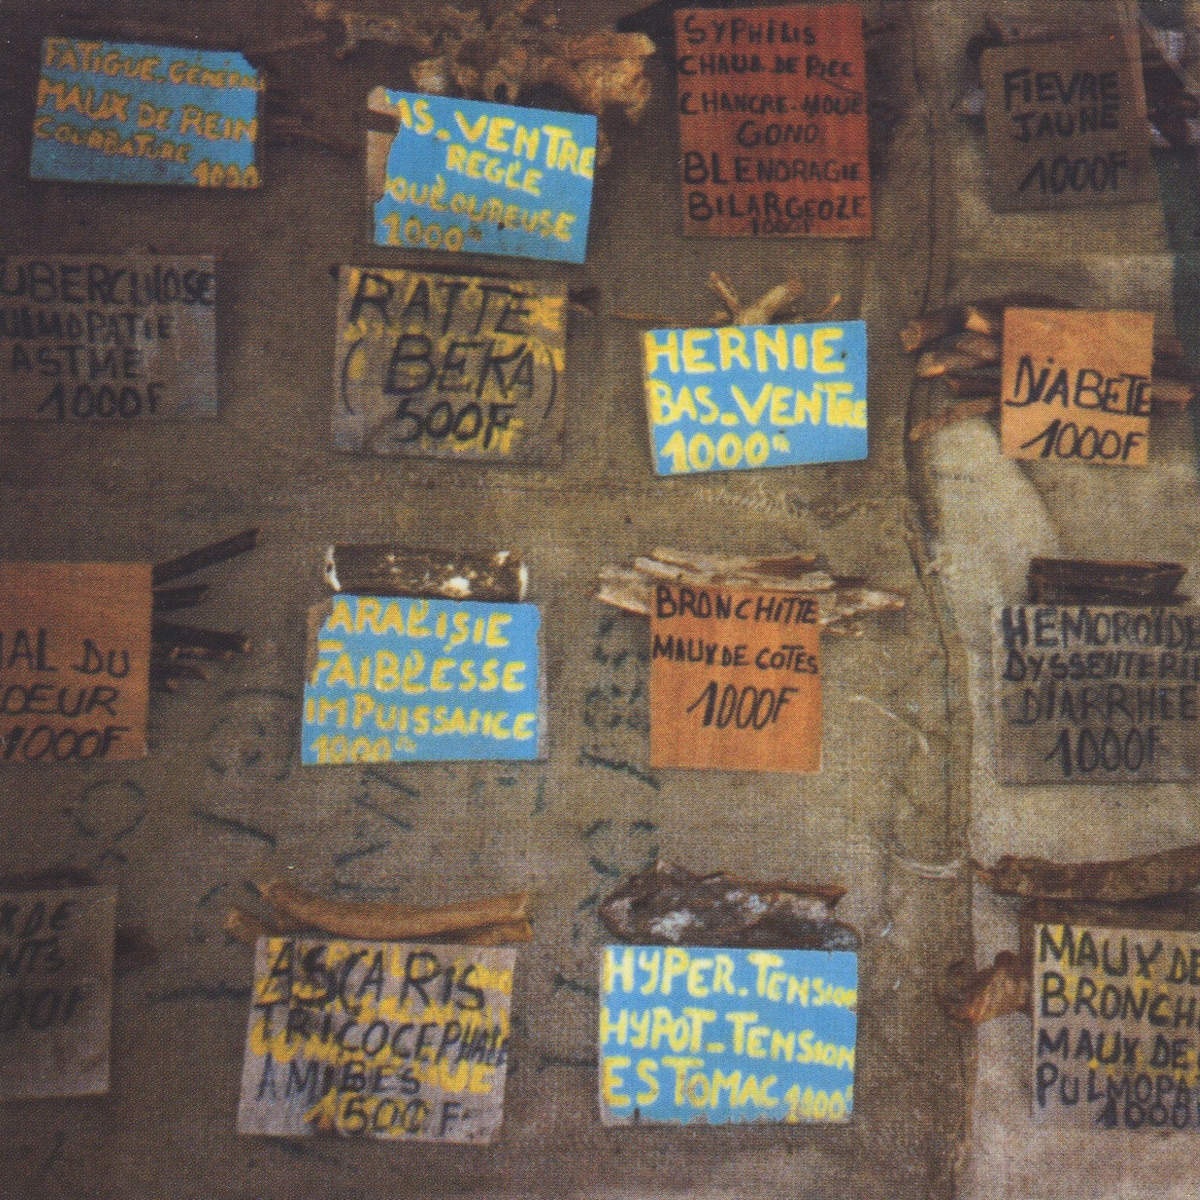 FATIGUE-GÉNÉRAL
MAUX DE REIN
COURBATURE
1000
AS-VENTRE
REGLE
OULOUREUSE
1000
SYPHILIS
CHAUD DE PICE
CHANCRE-MOUE
GONO
BLENORAGIE
BILARGEOZE
1000F
FIEVRE
JAUNE
1000F
UBERCULOSE
ULMOPATIE
ASTHME
1000F
RATTE
(BEKA)
500F
HERNIE
BAS-VENTRE
1000
DIABETE
1000F
AL DU
OEUR
1000F
ARALISIE
FAIBLESSE
IMPUISSANCE
1000
BRONCHITTE
MAUX DE COTES
1000F
HEMOROIDE
DYSSENTERIE
DIARRHEE
1000F
X DE
NTS
00F
ASCARIS
TRICOCEPHALE
AMIBES
1500F
HYPER-TENSION
HYPOT-TENSION
ESTOMAC 1000F
MAUX DE
BRONCH
MAUX DE
PULMOPA
1000